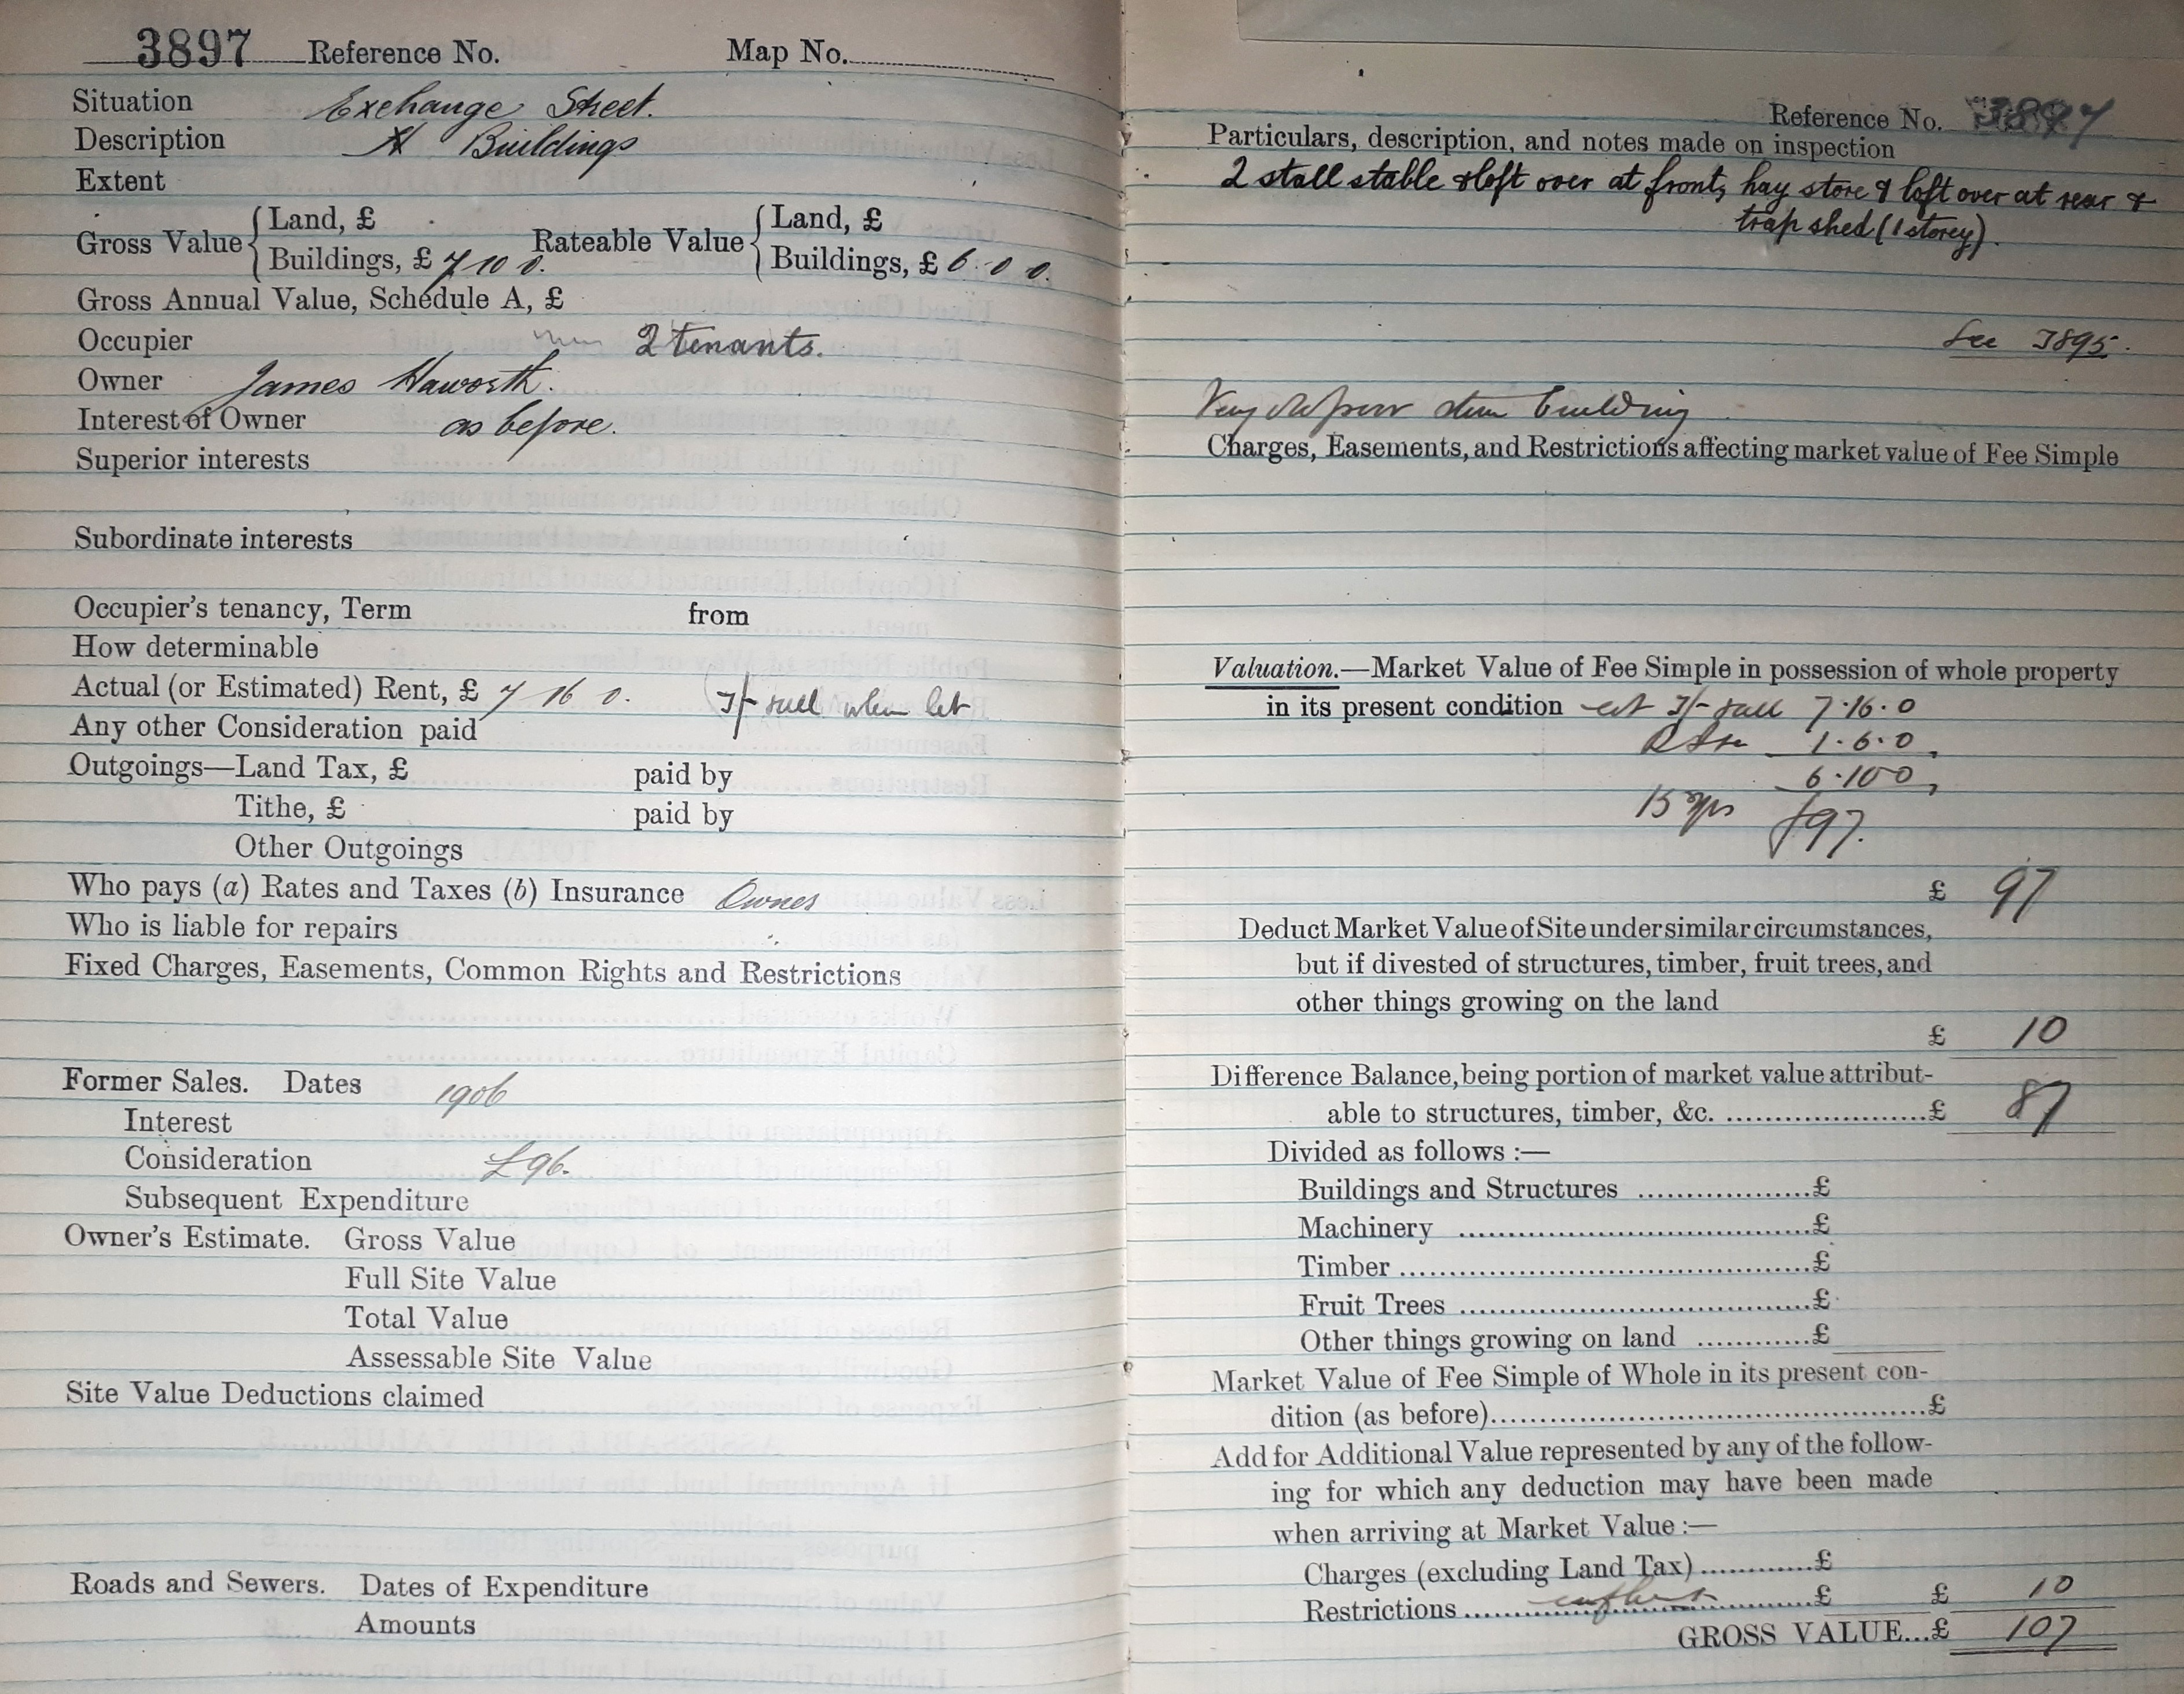 3897 Reference No. Map No.
Situation Exchange Street.
Description Buildings
Extent
Gross Value { Land, £
Buildings, £ 7 10 0. Rateable Value { Land, £
Buildings, £ 6 0 0.
Gross Annual Value, Schedule A, £
Occupier 2 tenants.
Owner James Haworth.
Interest of Owner as before.
Superior interests
Subordinate interests
Occupier's tenancy, Term from
How determinable
Actual (or Estimated) Rent, £ 7 16 0. 3/- when let
Any other Consideration paid
Outgoings—Land Tax, £ paid by
Tithe, £ paid by
Other Outgoings
Who pays (a) Rates and Taxes (b) Insurance Owner
Who is liable for repairs
Fixed Charges, Easements, Common Rights and Restrictions
Former Sales. Dates 1906
Interest
Consideration £96.
Subsequent Expenditure
Owner's Estimate. Gross Value
Full Site Value
Total Value
Assessable Site Value
Site Value Deductions claimed
Roads and Sewers. Dates of Expenditure
Amounts
Reference No. 3897
Particulars, description, and notes made on inspection
2 stall stable & loft over at front, hay store & loft over at rear &
trap shed (1 storey).
See 3895.
Very old poor stone building
Charges, Easements, and Restrictions affecting market value of Fee Simple
Valuation.—Market Value of Fee Simple in possession of whole property
in its present condition 3/- 7.16.0
1.6.0
6.10 0
15 yrs £97.
£ 97
Deduct Market Value of Site under similar circumstances,
but if divested of structures, timber, fruit trees, and
other things growing on the land
£ 10
Difference Balance, being portion of market value attribut-
able to structures, timber, &c. ....................£ 87
Divided as follows :—
Buildings and Structures ..................£
Machinery ....................................£
Timber ..........................................£
Fruit Trees ....................................£
Other things growing on land ............£
Market Value of Fee Simple of Whole in its present con-
dition (as before)..............................................£
Add for Additional Value represented by any of the follow-
ing for which any deduction may have been made
when arriving at Market Value :—
Charges (excluding Land Tax)............£
Restrictions ....................................£ £ 10
GROSS VALUE...£ 107